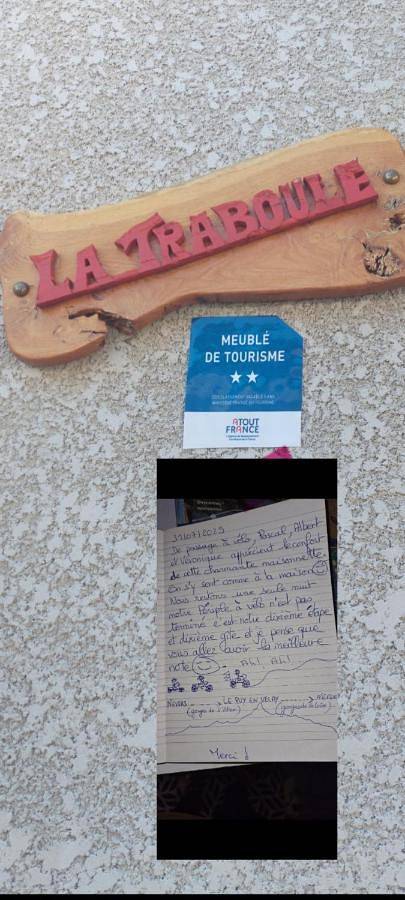 LA TRABOULE
MEUBLÉ
DE TOURISME
★★
ATOUT
FRANCE
31/07/2025
De passage à vélo, Pascal, Albert
et Véronique apprécient le confort
de cette charmante maisonnette
On s'y sent comme à la maison
Nous restons une seule nuit
notre périple à vélo n'est pas
terminé c'est notre dixième étape
et dixième gîte et je pense que
vous allez avoir la meilleure
note
AL! AL!
NEVERS LE PUY EN VELAY MENDE
(gorges de l'Allier)
Merci !